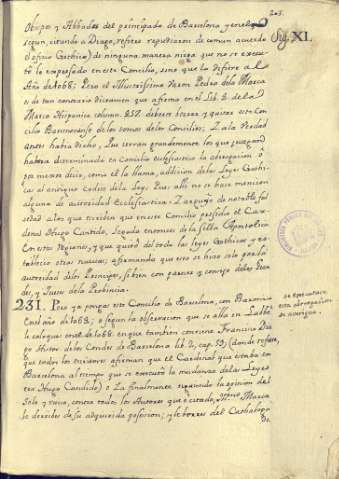 203.
Obispos y Abbades del principado de Barcelona y en el que
segun, citando a Diago, refiere repudiaron de comun acuerdo Sig. XI.
el oficio Gothico) de ninguna manera niega que no se execu-
tò lo expresado en este Concilio, sino que la difiere al
Año de 1068; Pero el Illustrissimo Varon Pedro de la Marca
es de tan contrario dictamen que afirma en el Lib. 4. de la
Marca Hispanica column. 457. deberse borrar y quitar este Con-
cilio Barcinonense de los tomos de los Concilios; Y a la verdad
antes habia dicho, Que yerran grandemente los que juzgan
haberse determinado en Concilio ecclesiastico la abrogacion ò
por mejor decir, como el la llama, addicion de las Leyes Gothi-
cas al antiguo Codice de la Ley; Pues alli no se hace mencion
alguna de autoridad Ecclesiastica; Y arguye de notable fal-
sedad a los que escriben que en este Concilio presidió el Car-
denal Hugo Candido, Legado entonces de la Silla Apostolica
Con estas regiones, y que quitó del todo las leyes Gothicas y es-
tablecio otras nuevas; afirmando que esto se hizo solo por la
autoridad de los Principes, si bien con parecer y consejo de los Gran-
des, y Jueces de la Probincia.
231. Pero ya pongas este Concilio de Barcelona, con Baronio
en el año de 1064; o segun la observacion que se alla en Labbè
le coloques en el de 1068. en que tambien conviene Francisco Dia-
go Autor de los Condes de Barcelona lib. 2, cap. 59; (donde refiere,
que todos los escritores afirman que el Cardenal que estaba en
Barcelona al tiempo que se executó la mudanza de las Leyes
era Hugo Candido) o Ya finalmente siguiendo la opinion del
solo y unico, contra todos los Autores que e citado, Illmo. Marca
le derribes de su adquirida posesion; y le borres del Cathalogo
de
se trata sobre
esta abrogacion
se averigua.